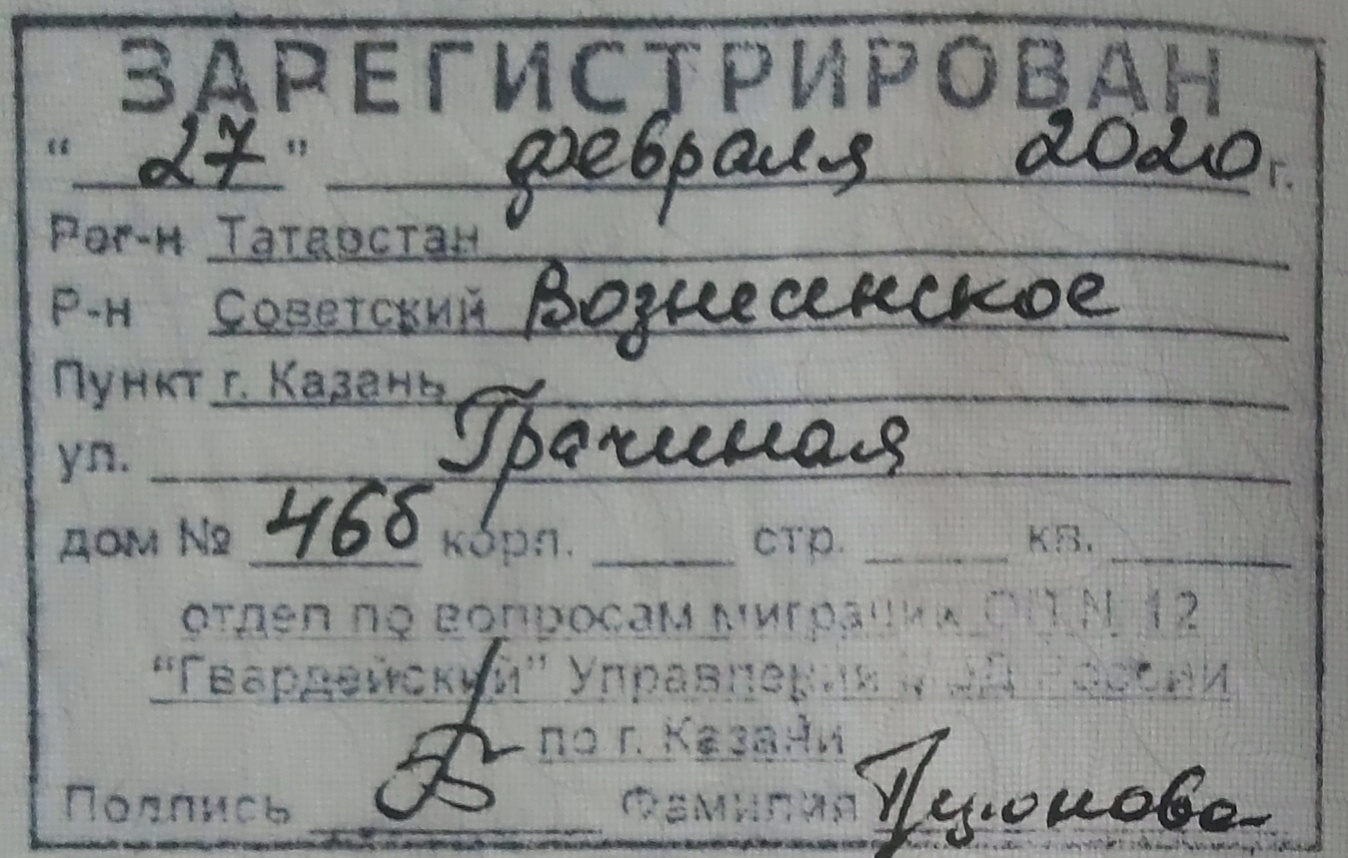 ЗАРЕГИСТРИРОВАН
“ 27 ” февраля 2020 г.
Рег-н Татарстан
Р-н Советский Вознесенское
Пункт г. Казань
ул. Грачиная
дом № 46б корп. стр. кв.
отдел по вопросам миграции ОП N 12
“Гвардейский” Управления МВД России
по г. Казани
Подпись Фамилия